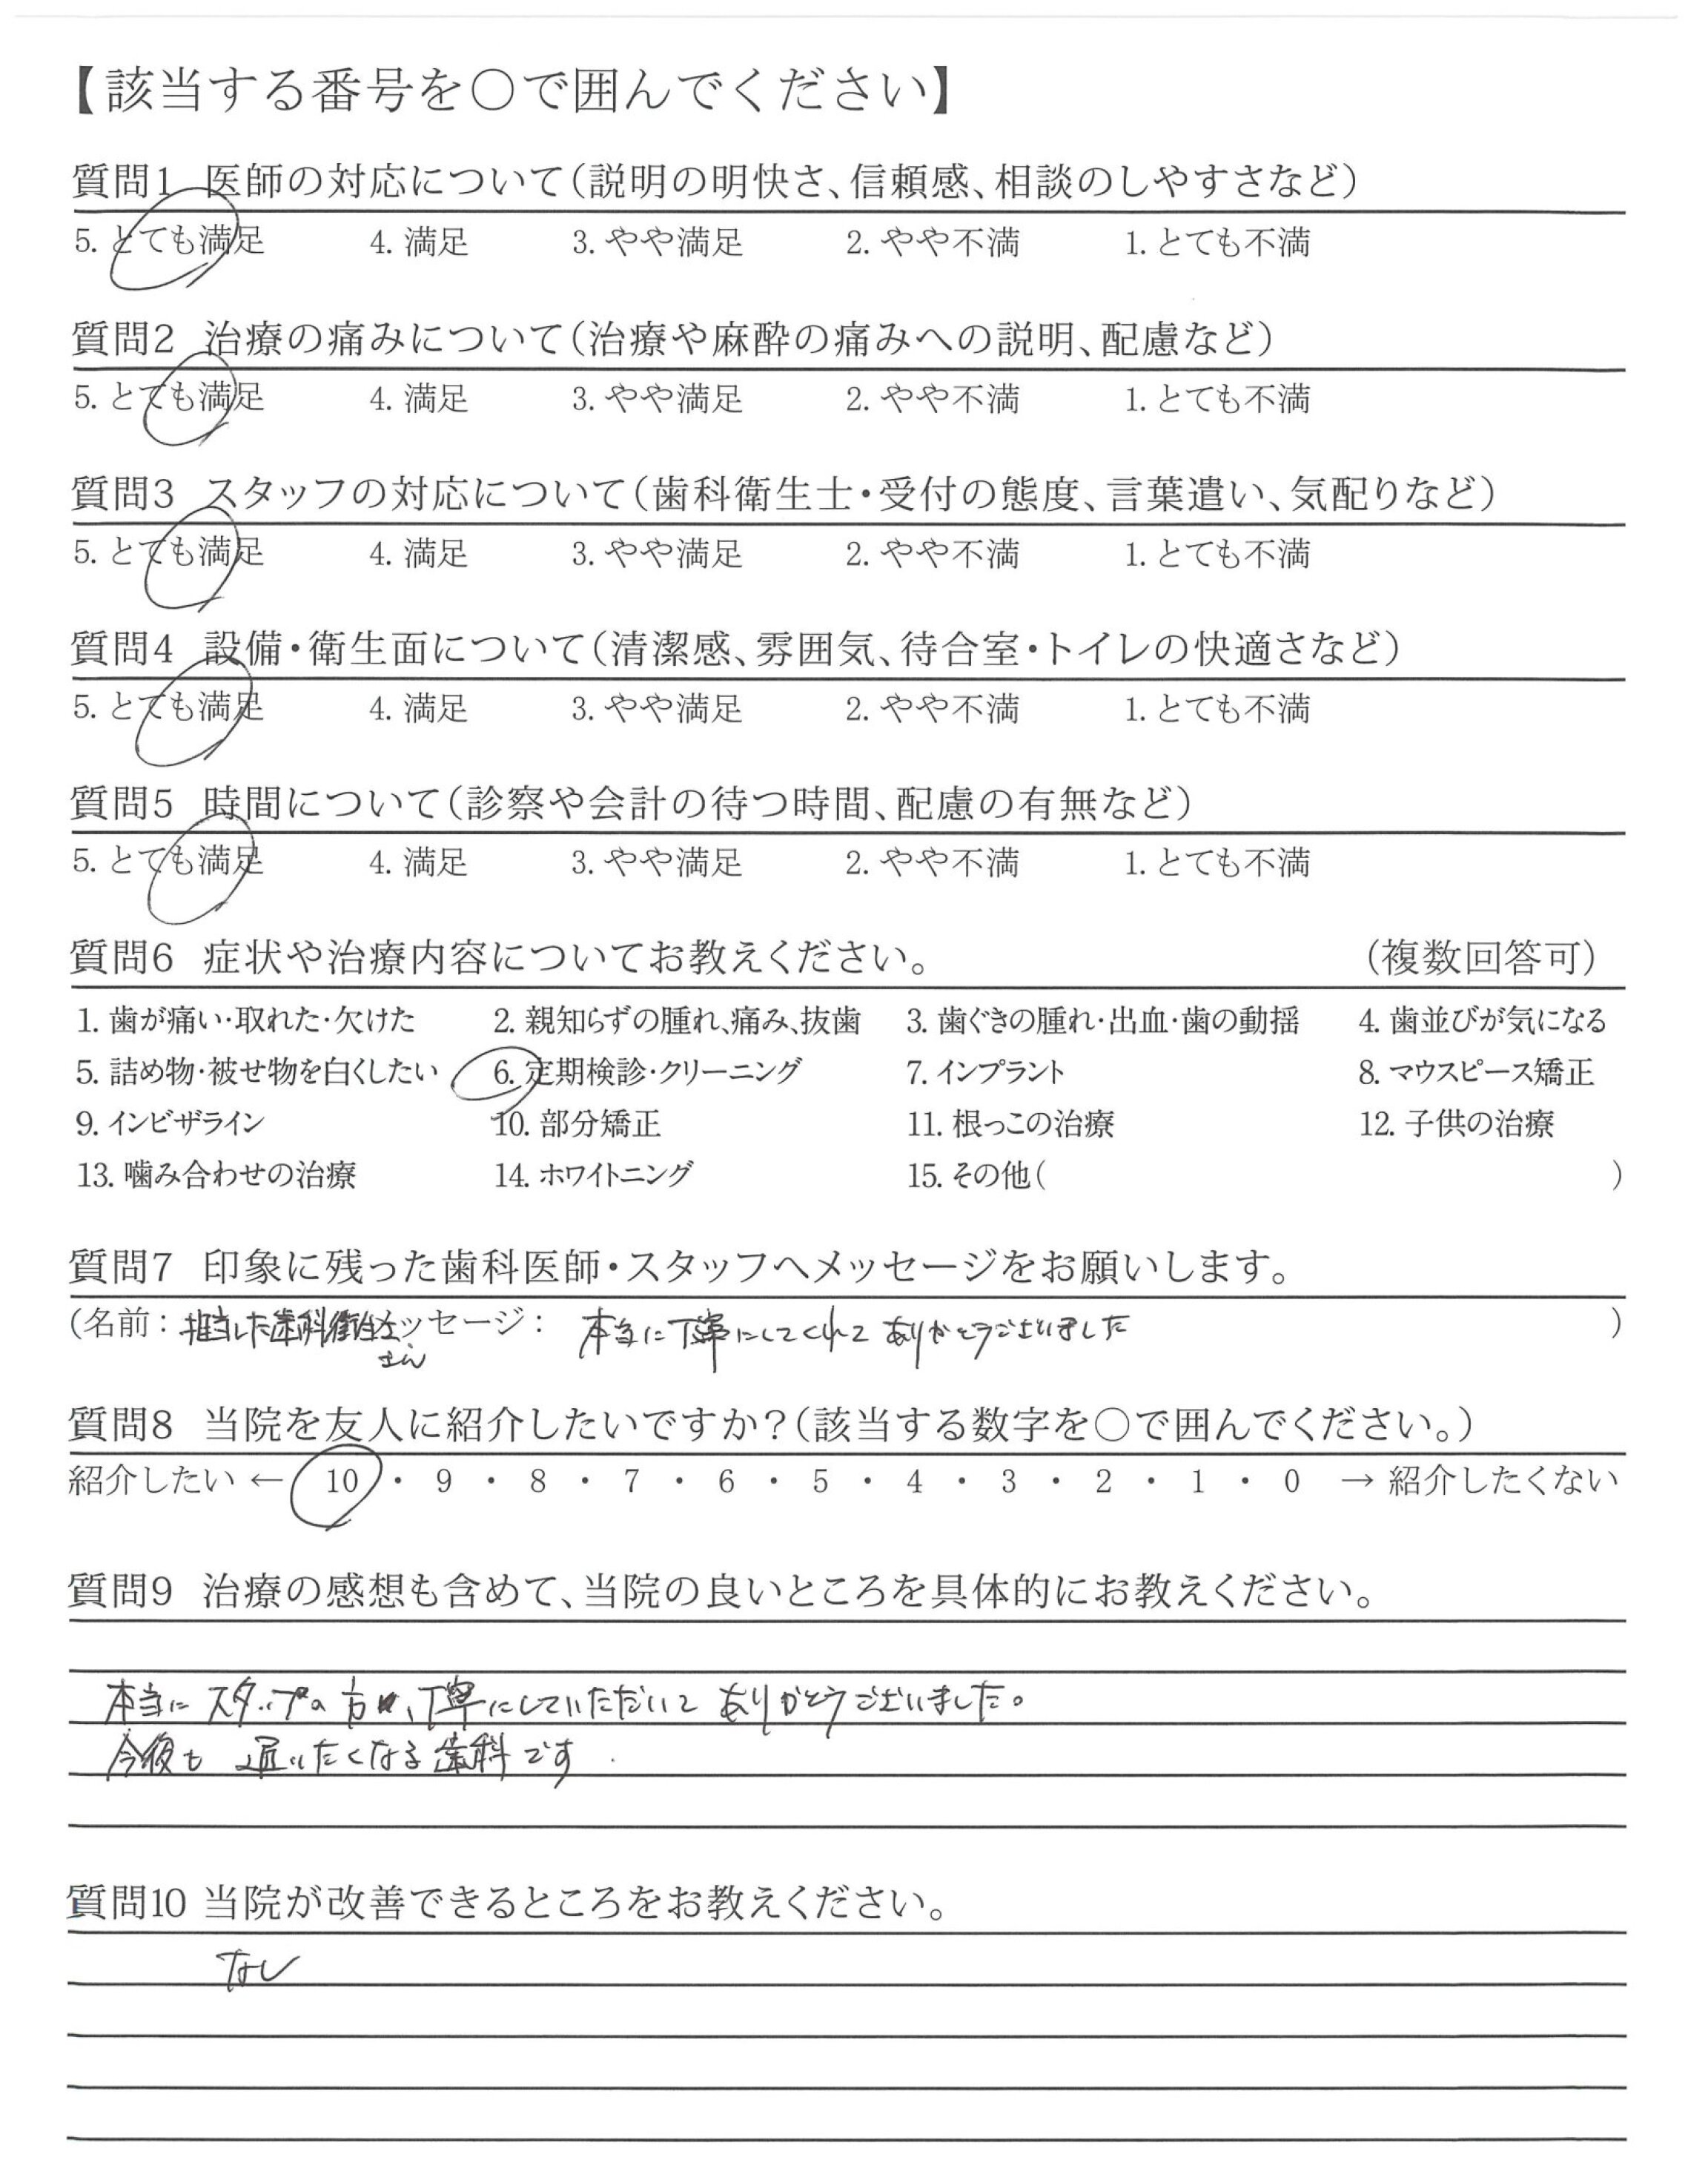 【該当する番号を○で囲んでください】
質問1 医師の対応について(説明の明快さ、信頼感、相談のしやすさなど)
5. とても満足 4. 満足 3. やや満足 2. やや不満 1. とても不満
質問2 治療の痛みについて(治療や麻酔の痛みへの説明、配慮など)
5. とても満足 4. 満足 3. やや満足 2. やや不満 1. とても不満
質問3 スタッフの対応について(歯科衛生士・受付の態度、言葉遣い、気配りなど)
5. とても満足 4. 満足 3. やや満足 2. やや不満 1. とても不満
質問4 設備・衛生面について(清潔感、雰囲気、待合室・トイレの快適さなど)
5. とても満足 4. 満足 3. やや満足 2. やや不満 1. とても不満
質問5 時間について(診察や会計の待つ時間、配慮の有無など)
5. とても満足 4. 満足 3. やや満足 2. やや不満 1. とても不満
質問6 症状や治療内容についてお教えください。 (複数回答可)
1. 歯が痛い・取れた・欠けた 2. 親知らずの腫れ、痛み、抜歯 3. 歯ぐきの腫れ・出血・歯の動揺 4. 歯並びが気になる
5. 詰め物・被せ物を白くしたい 6. 定期検診・クリーニング 7. インプラント 8. マウスピース矯正
9. インビザライン 10. 部分矯正 11. 根っこの治療 12. 子供の治療
13. 噛み合わせの治療 14. ホワイトニング 15. その他( )
質問7 印象に残った歯科医師・スタッフへメッセージをお願いします。
(名前: 担当した歯科衛生士さん メッセージ: 本当に丁寧にしてくれて ありがとうございました )
質問8 当院を友人に紹介したいですか?(該当する数字を○で囲んでください。)
紹介したい ← 10 ・ 9 ・ 8 ・ 7 ・ 6 ・ 5 ・ 4 ・ 3 ・ 2 ・ 1 ・ 0 → 紹介したくない
質問9 治療の感想も含めて、当院の良いところを具体的にお教えください。
本当に スタッフの方 、丁寧にしていただいて ありがとうございました。
今後も 通いたくなる歯科です.
質問10 当院が改善できるところをお教えください。
なし